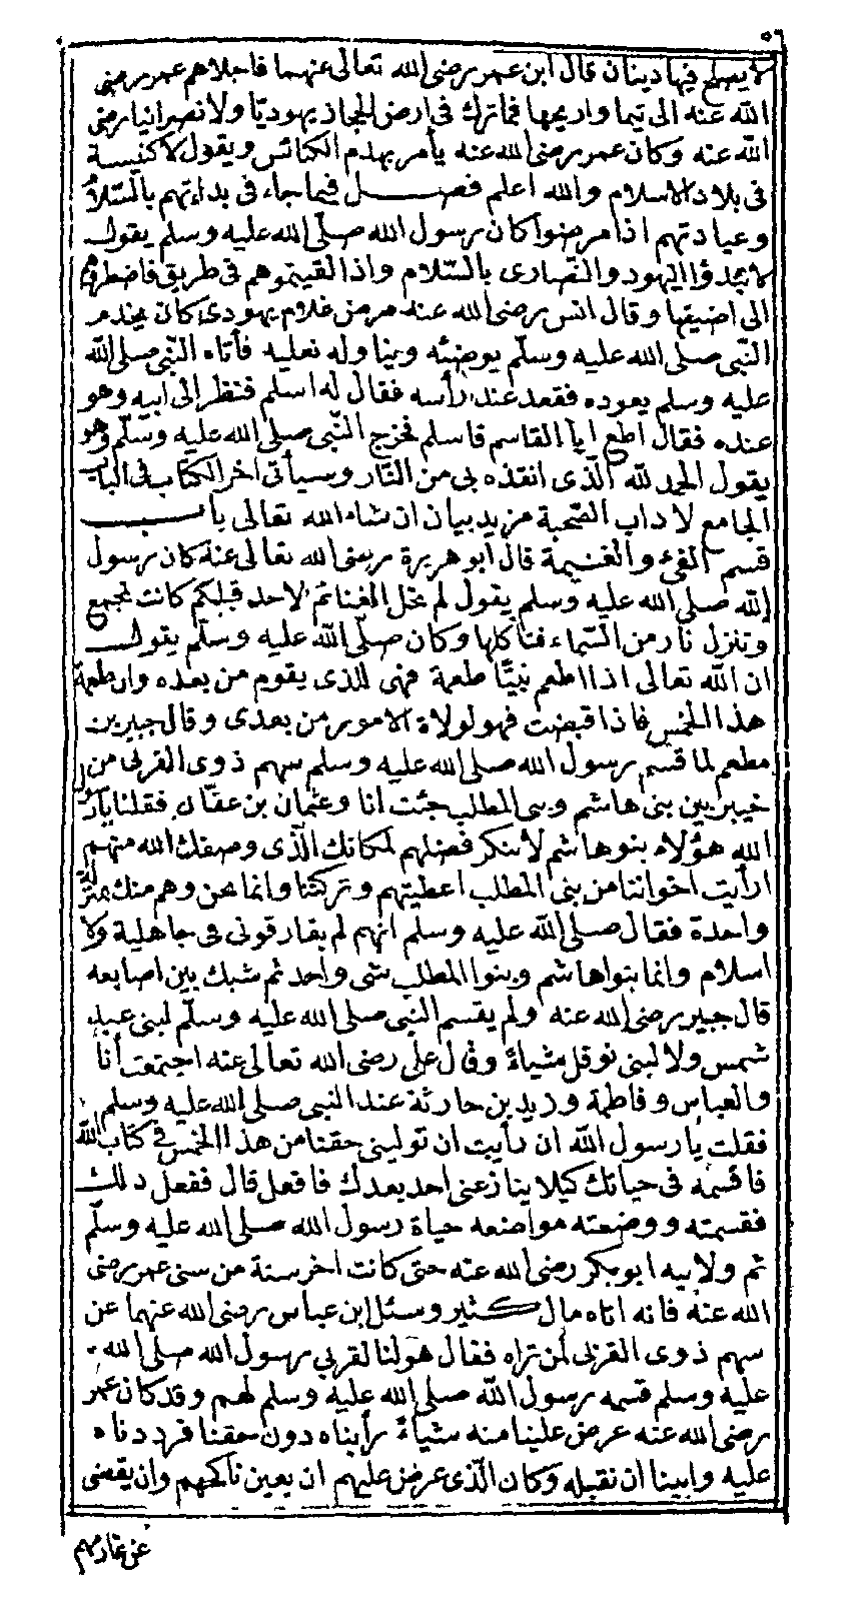 ٥٦
لا يصلح فيها دينان قال ابن عمر رضى الله تعالى عنهما فاجلاهم عمر رضى
الله عنه الى تيما واريحا فما ترك فى ارض الحجاز يهوديّا ولا نصرانيا رضى
الله عنه وكان عمر رضى الله عنه يأمر بهدم الكنائس ويقول لا كنيسة
فى بلاد الاسلام والله اعلم فصل فيما جاء فى بداءتهم بالسّلام
وعيادتهم اذا مرضوا كان رسول الله صلّى الله عليه وسلم يقول
لا تبدؤا اليهود والنّصارى بالسّلام واذا لقيتموهم فى طريق فاضطروهم
الى اضيقها وقال انس رضى الله عنه مرض غلام يهودى كان يخدم
النّبى صلى الله عليه وسلّم يوضئه ويناوله نعليه فأتاه النّبى صلى الله
عليه وسلم يعوده فقعد عند رأسه فقال له اسلم فنظر الى ابيه وهو
عنده فقال اطع ابا القاسم فاسلم فخرج النّبى صلى الله عليه وسلّم وهو
يقول الحمد لله الّذى انقذه بى من النّار وسيأتى اخر الكتاب فى الباب
الجامع لاداب الصّحبة مزيد بيان ان شاء الله تعالى باب
قسم الفئ والغنيمة قال ابو هريرة رضى الله تعالى عنه كان رسول
الله صلى الله عليه وسلم يقول لم تحل الغنائم لاحد قبلكم كانت تجمع
وتنزل نار من السّماء فتأكلها وكان صلّى الله عليه وسلّم يقول
ان الله تعالى اذا اطعم نبيّا طعمة فهى للذى يقوم من بعده وان طعمة
هذا الخمس فاذا قبضت فهو لولاة الامور من بعدى وقال جبير بن
مطعم لما قسم رسول الله صلى الله عليه وسلم سهم ذوى القربى من
خيبر بين بنى هاشم وبنى المطلب جئت انا وعثمان بن عفّان فقلنا يا رسول
الله هؤلاء بنو هاشم لا ننكر فضلهم لمكانك الّذى وصفك الله منهم
ارأيت اخواننا من بنى المطلب اعطيتهم وتركتنا وانما نحن وهم منك بمنزلة
واحدة فقال صلى الله عليه وسلم انهم لم يفارقونى فى جاهلية ولا
اسلام وانما بنوا هاشم وبنوا المطلب شى واحد ثم شبك بين اصابعه
قال جبير رضى الله عنه ولم يقسم النبى صلى الله عليه وسلّم لبنى عبد
شمس ولا لبنى نوفل شياءً وقال على رضى الله تعالى عنه اجتمعت أنا
والعباس وفاطمة وزيد بن حارثة عند النبى صلى الله عليه وسلم
فقلت يا رسول الله ان رأيت ان تولينى حقنا من هذا الخمس فى كتاب الله
فاقسمه فى حياتك كيلا ينازعنى احد بعدك فافعل قال ففعل ذلك
فقسمته ووضعته مواضعه حياة رسول الله صلى الله عليه وسلّم
ثم ولانيه ابو بكر رضى الله عنه حتى كانت اخر سنة من سنى عمر رضى
الله عنه فانه اتاه مال كثير وسئل ابن عباس رضى الله عنهما عن
سهم ذوى القربى لمن تراه فقال هو لنا لقربى رسول الله صلى الله
عليه وسلم قسمه رسول الله صلى الله عليه وسلم لهم وقد كان عمر
رضى الله عنه عرض علينا منه شياءً رأيناه دون حقنا فرددناه
عليه وابينا ان نقبله وكان الّذى عرض عليهم ان يعين ناكحهم وان يقضى
عن غارمهم